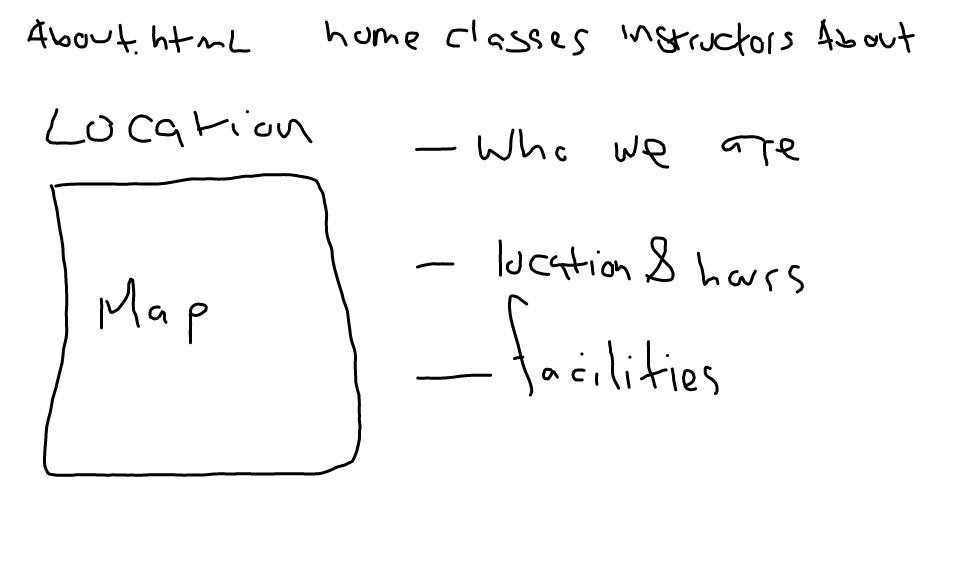 About.html home classes instructors About
Location
- Who we are
Map
- location & hours
- facilities